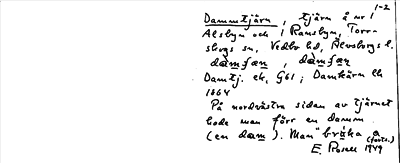 1-2
Dammtjärn, tjärn å nr 1
Alsbyn och 1 Ramsbyn, Torr-
skogs sn, Vedbo hd, Älvsborgs l.
damfæn, damfæn
Damtj. ek, G61; Damkärn lk
1864
På nordvästra sidan av tjärnet
hade man förr en damm
(en dam). Man "bräka (forts.)
E. Rosell 1949